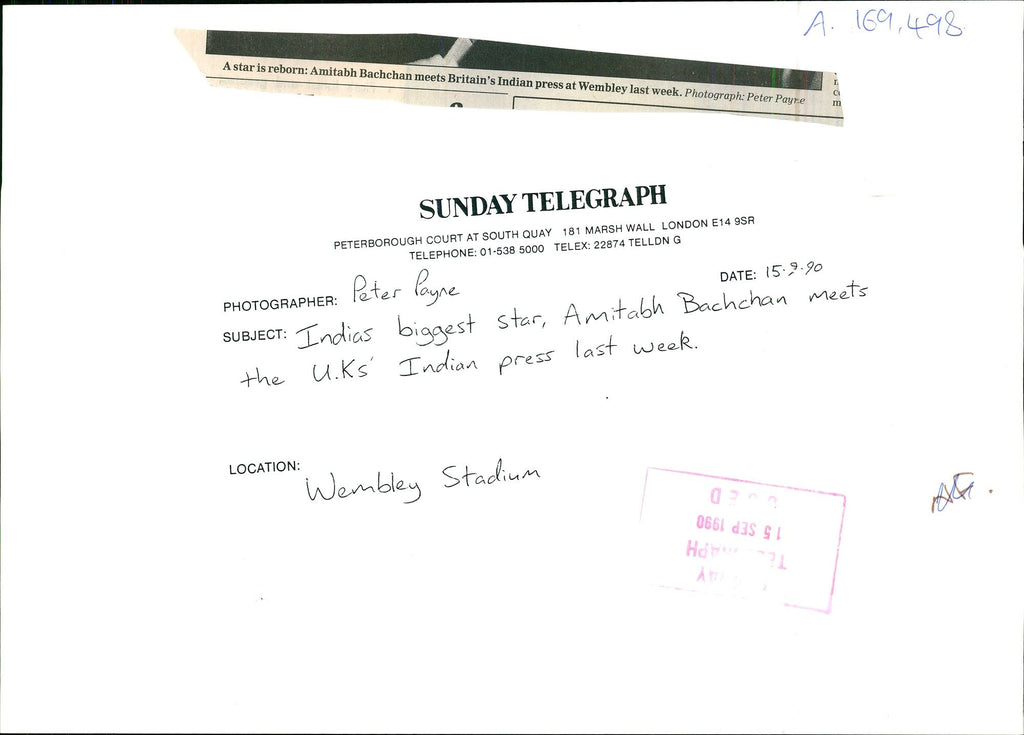 A. 169,498
A star is reborn: Amitabh Bachchan meets Britain's Indian press at Wembley last week. Photograph: Peter Payne
SUNDAY TELEGRAPH
PETERBOROUGH COURT AT SOUTH QUAY 181 MARSH WALL LONDON E14 9SR
TELEPHONE: 01-538 5000 TELEX: 22874 TELLDN G
PHOTOGRAPHER: Peter Payne
DATE: 15.9.90
SUBJECT: Indias biggest star, Amitabh Bachchan meets
the U.Ks' Indian press last week.
LOCATION: Wembley Stadium
15 SEP 1990